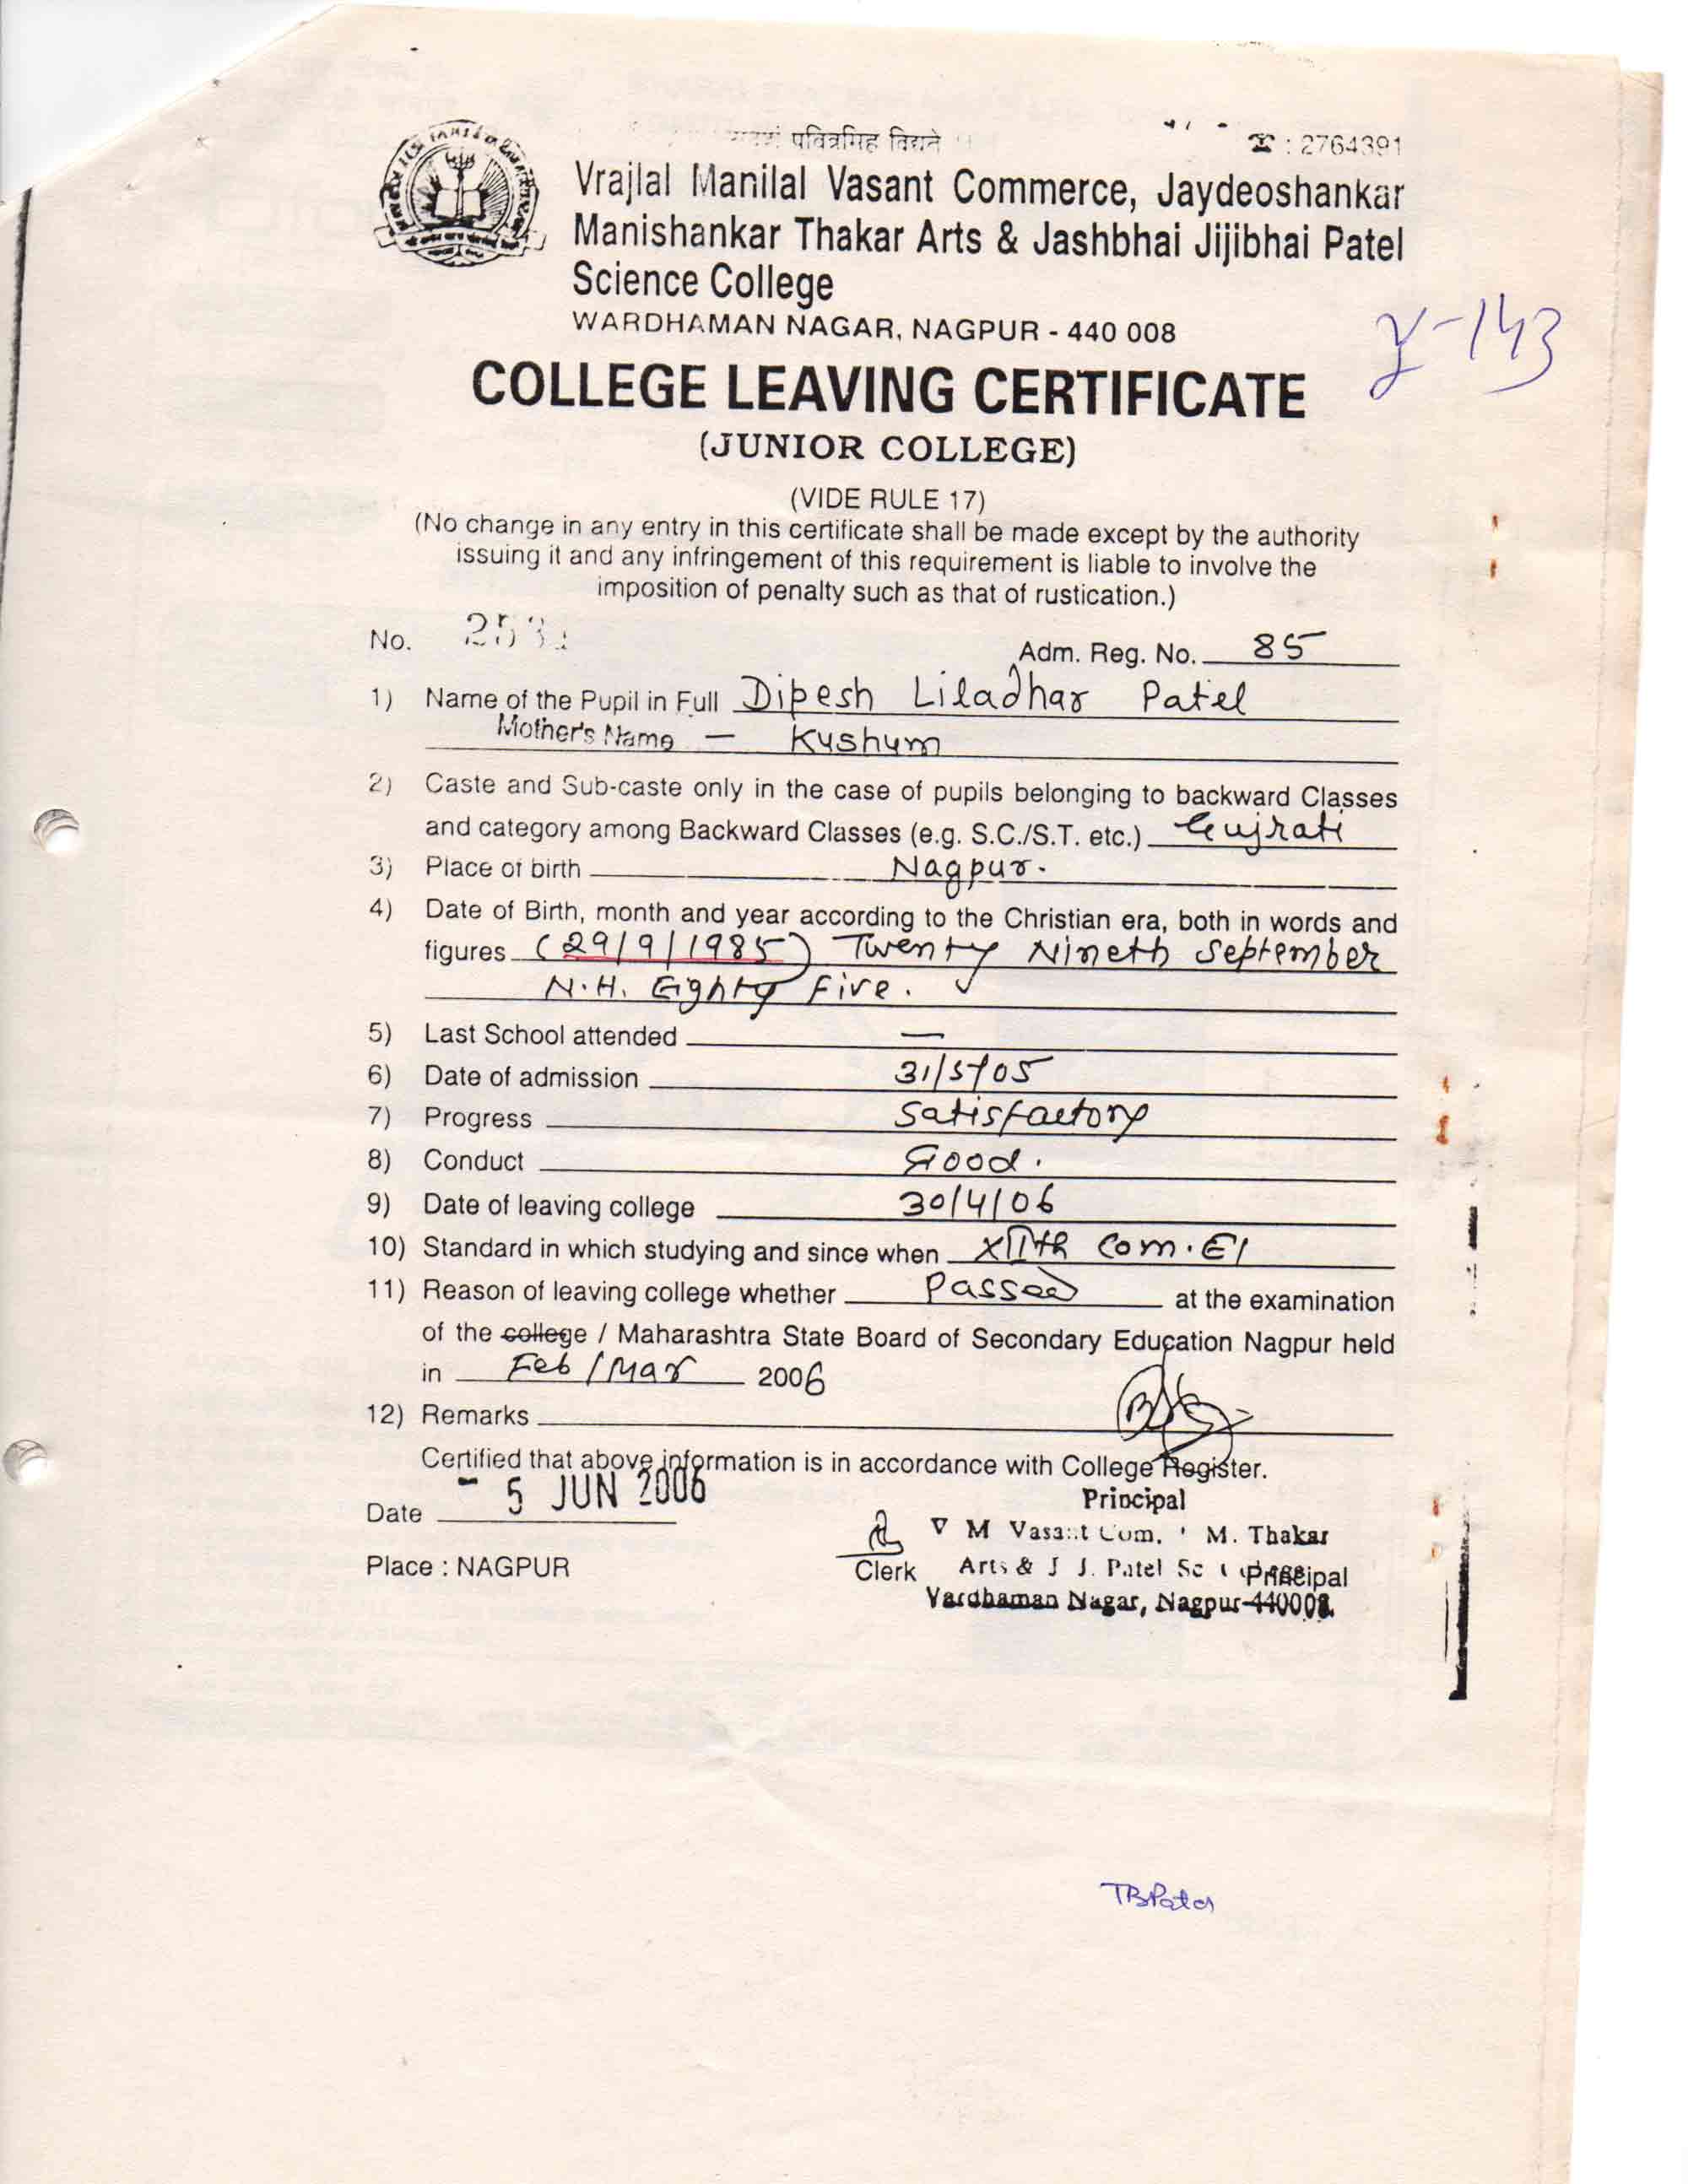 पवित्रमिह विद्यते
☎ : 2764391
Vrajlal Manilal Vasant Commerce, Jaydeoshankar
Manishankar Thakar Arts & Jashbhai Jijibhai Patel
Science College
WARDHAMAN NAGAR, NAGPUR - 440 008
y-143
COLLEGE LEAVING CERTIFICATE
(JUNIOR COLLEGE)
(VIDE RULE 17)
(No change in any entry in this certificate shall be made except by the authority
issuing it and any infringement of this requirement is liable to involve the
imposition of penalty such as that of rustication.)
No.
Adm. Reg. No. 85
1) Name of the Pupil in Full Dipesh Liladhar Patel
Mother's Name - Kushum
2) Caste and Sub-caste only in the case of pupils belonging to backward Classes
and category among Backward Classes (e.g. S.C./S.T. etc.) Gujrati
3) Place of birth Nagpur.
4) Date of Birth, month and year according to the Christian era, both in words and
figures (29/9/1985) Twenty Nineth September
N.H. Eighty Five.
5) Last School attended —
6) Date of admission 31/5/05
7) Progress Satisfactory
8) Conduct Good.
9) Date of leaving college 30/4/06
10) Standard in which studying and since when XIIth Com. E1
11) Reason of leaving college whether Passed at the examination
of the college / Maharashtra State Board of Secondary Education Nagpur held
in Feb / Mar 2006
12) Remarks
Certified that above information is in accordance with College Register.
Date - 5 JUN 2006
Principal
V M Vasant Com. M. Thakar
Place : NAGPUR
Clerk
Arts & J J. Patel Sc
Principal
Vardhaman Nagar, Nagpur-440008.